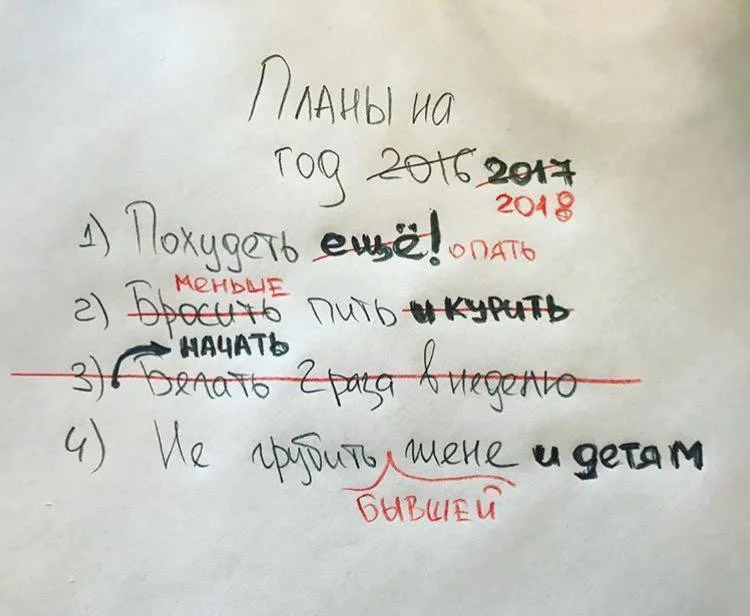 Планы на
год 2016 2017
2018
1) Похудеть ещё! опять
меньше
2) Бросить пить и курить
начать
3) Бегать 2 раза в неделю
4) Не грубить жене и детям
бывшей